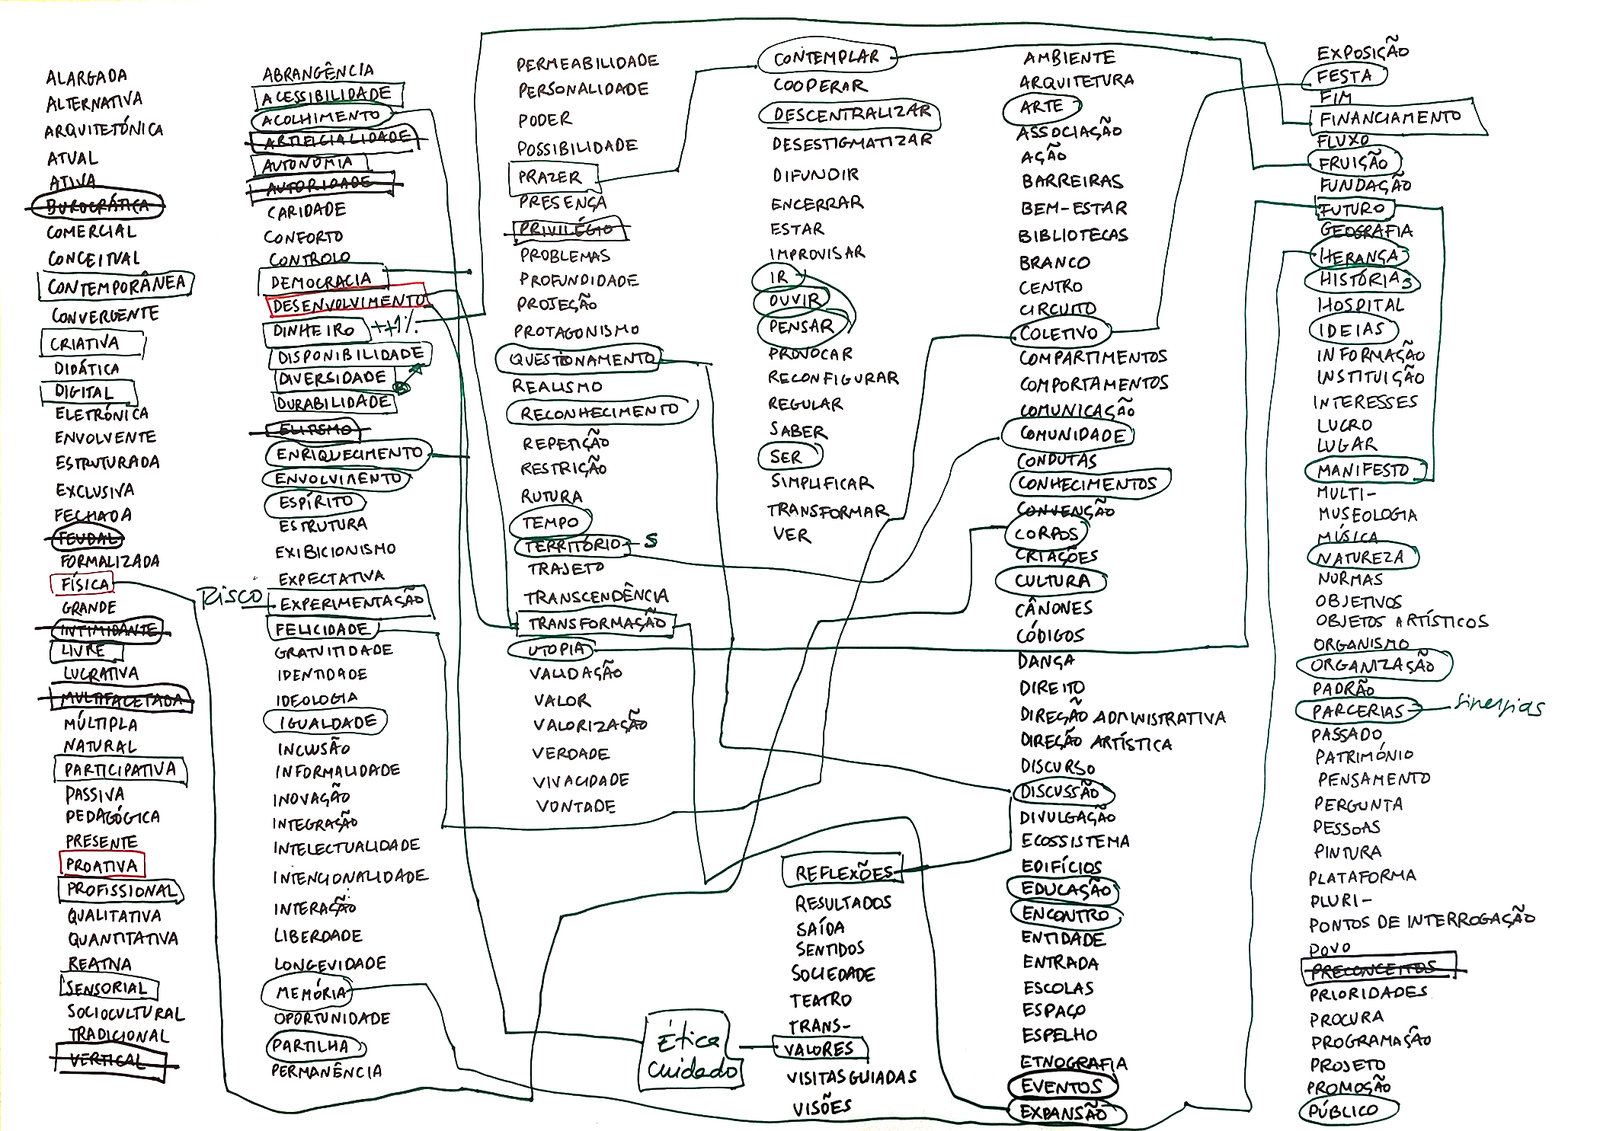 ALARGADA
ALTERNATIVA
ARQUITETÓNICA
ATUAL
ATIVA
BUROCRÁTICA
COMERCIAL
CONCEITUAL
CONTEMPORÂNEA
CONVERGENTE
CRIATIVA
DIDÁTICA
DIGITAL
ELETRÓNICA
ENVOLVENTE
ESTRUTURADA
EXCLUSIVA
FECHADA
FEUDAL
FORMALIZADA
FÍSICA
GRANDE
INTIMIDANTE
LIVRE
LUCRATIVA
MULTIFACETADA
MÚLTIPLA
NATURAL
PARTICIPATIVA
PASSIVA
PEDAGÓGICA
PRESENTE
PROATIVA
PROFISSIONAL
QUALITATIVA
QUANTITATIVA
REATIVA
SENSORIAL
SOCIOCULTURAL
TRADICIONAL
VERTICAL
ABRANGÊNCIA
ACESSIBILIDADE
ACOLHIMENTO
ARTIFICIALIDADE
AUTONOMIA
AUTORIDADE
CARIDADE
CONFORTO
CONTROLO
DEMOCRACIA
DESENVOLVIMENTO
DINHEIRO ++1%
DISPONIBILIDADE
DIVERSIDADE
DURABILIDADE
ELITISMO
ENRIQUECIMENTO
ENVOLVIMENTO
ESPÍRITO
ESTRUTURA
EXIBICIONISMO
EXPECTATIVA
RISCO EXPERIMENTAÇÃO
FELICIDADE
GRATUITIDADE
IDENTIDADE
IDEOLOGIA
IGUALDADE
INCLUSÃO
INFORMALIDADE
INOVAÇÃO
INTEGRAÇÃO
INTELECTUALIDADE
INTENCIONALIDADE
INTERAÇÃO
LIBERDADE
LONGEVIDADE
MEMÓRIA
OPORTUNIDADE
PARTILHA
PERMANÊNCIA
PERMEABILIDADE
PERSONALIDADE
PODER
POSSIBILIDADE
PRAZER
PRESENÇA
PRIVILÉGIO
PROBLEMAS
PROFUNDIDADE
PROJEÇÃO
PROTAGONISMO
QUESTIONAMENTO
REALISMO
RECONHECIMENTO
REPETIÇÃO
RESTRIÇÃO
RUTURA
TEMPO
TERRITÓRIO - S
TRAJETO
TRANSCENDÊNCIA
TRANSFORMAÇÃO
UTOPIA
VALIDAÇÃO
VALOR
VALORIZAÇÃO
VERDADE
VIVACIDADE
VONTADE
Ética
Cuidado
CONTEMPLAR
COOPERAR
DESCENTRALIZAR
DESESTIGMATIZAR
DIFUNDIR
ENCERRAR
ESTAR
IMPROVISAR
IR
OUVIR
PENSAR
PROVOCAR
RECONFIGURAR
REGULAR
SABER
SER
SIMPLIFICAR
TRANSFORMAR
VER
REFLEXÕES
RESULTADOS
SAÍDA
SENTIDOS
SOCIEDADE
TEATRO
TRANS-
VALORES
VISITAS GUIADAS
VISÕES
AMBIENTE
ARQUITETURA
ARTE
ASSOCIAÇÃO
AÇÃO
BARREIRAS
BEM-ESTAR
BIBLIOTECAS
BRANCO
CENTRO
CIRCUITO
COLETIVO
COMPARTIMENTOS
COMPORTAMENTOS
COMUNICAÇÃO
COMUNIDADE
CONDUTAS
CONHECIMENTOS
CONVENÇÃO
CORPOS
CRIAÇÕES
CULTURA
CÂNONES
CÓDIGOS
DANÇA
DIREITO
DIREÇÃO ADMINISTRATIVA
DIREÇÃO ARTÍSTICA
DISCURSO
DISCUSSÃO
DIVULGAÇÃO
ECOSSISTEMA
EDIFÍCIOS
EDUCAÇÃO
ENCONTRO
ENTIDADE
ENTRADA
ESCOLAS
ESPAÇO
ESPELHO
ETNOGRAFIA
EVENTOS
EXPANSÃO
EXPOSIÇÃO
FESTA
FIM
FINANCIAMENTO
FLUXO
FRUIÇÃO
FUNDAÇÃO
FUTURO
GEOGRAFIA
HERANÇA
HISTÓRIAS
HOSPITAL
IDEIAS
INFORMAÇÃO
INSTITUIÇÃO
INTERESSES
LUCRO
LUGAR
MANIFESTO
MULTI-
MUSEOLOGIA
MÚSICA
NATUREZA
NORMAS
OBJETIVOS
OBJETOS ARTÍSTICOS
ORGANISMO
ORGANIZAÇÃO
PADRÃO
PARCERIAS - Sinergias
PASSADO
PATRIMÓNIO
PENSAMENTO
PERGUNTA
PESSOAS
PINTURA
PLATAFORMA
PLURI-
PONTOS DE INTERROGAÇÃO
POVO
PRECONCEITOS
PRIORIDADES
PROCURA
PROGRAMAÇÃO
PROJETO
PROMOÇÃO
PÚBLICO